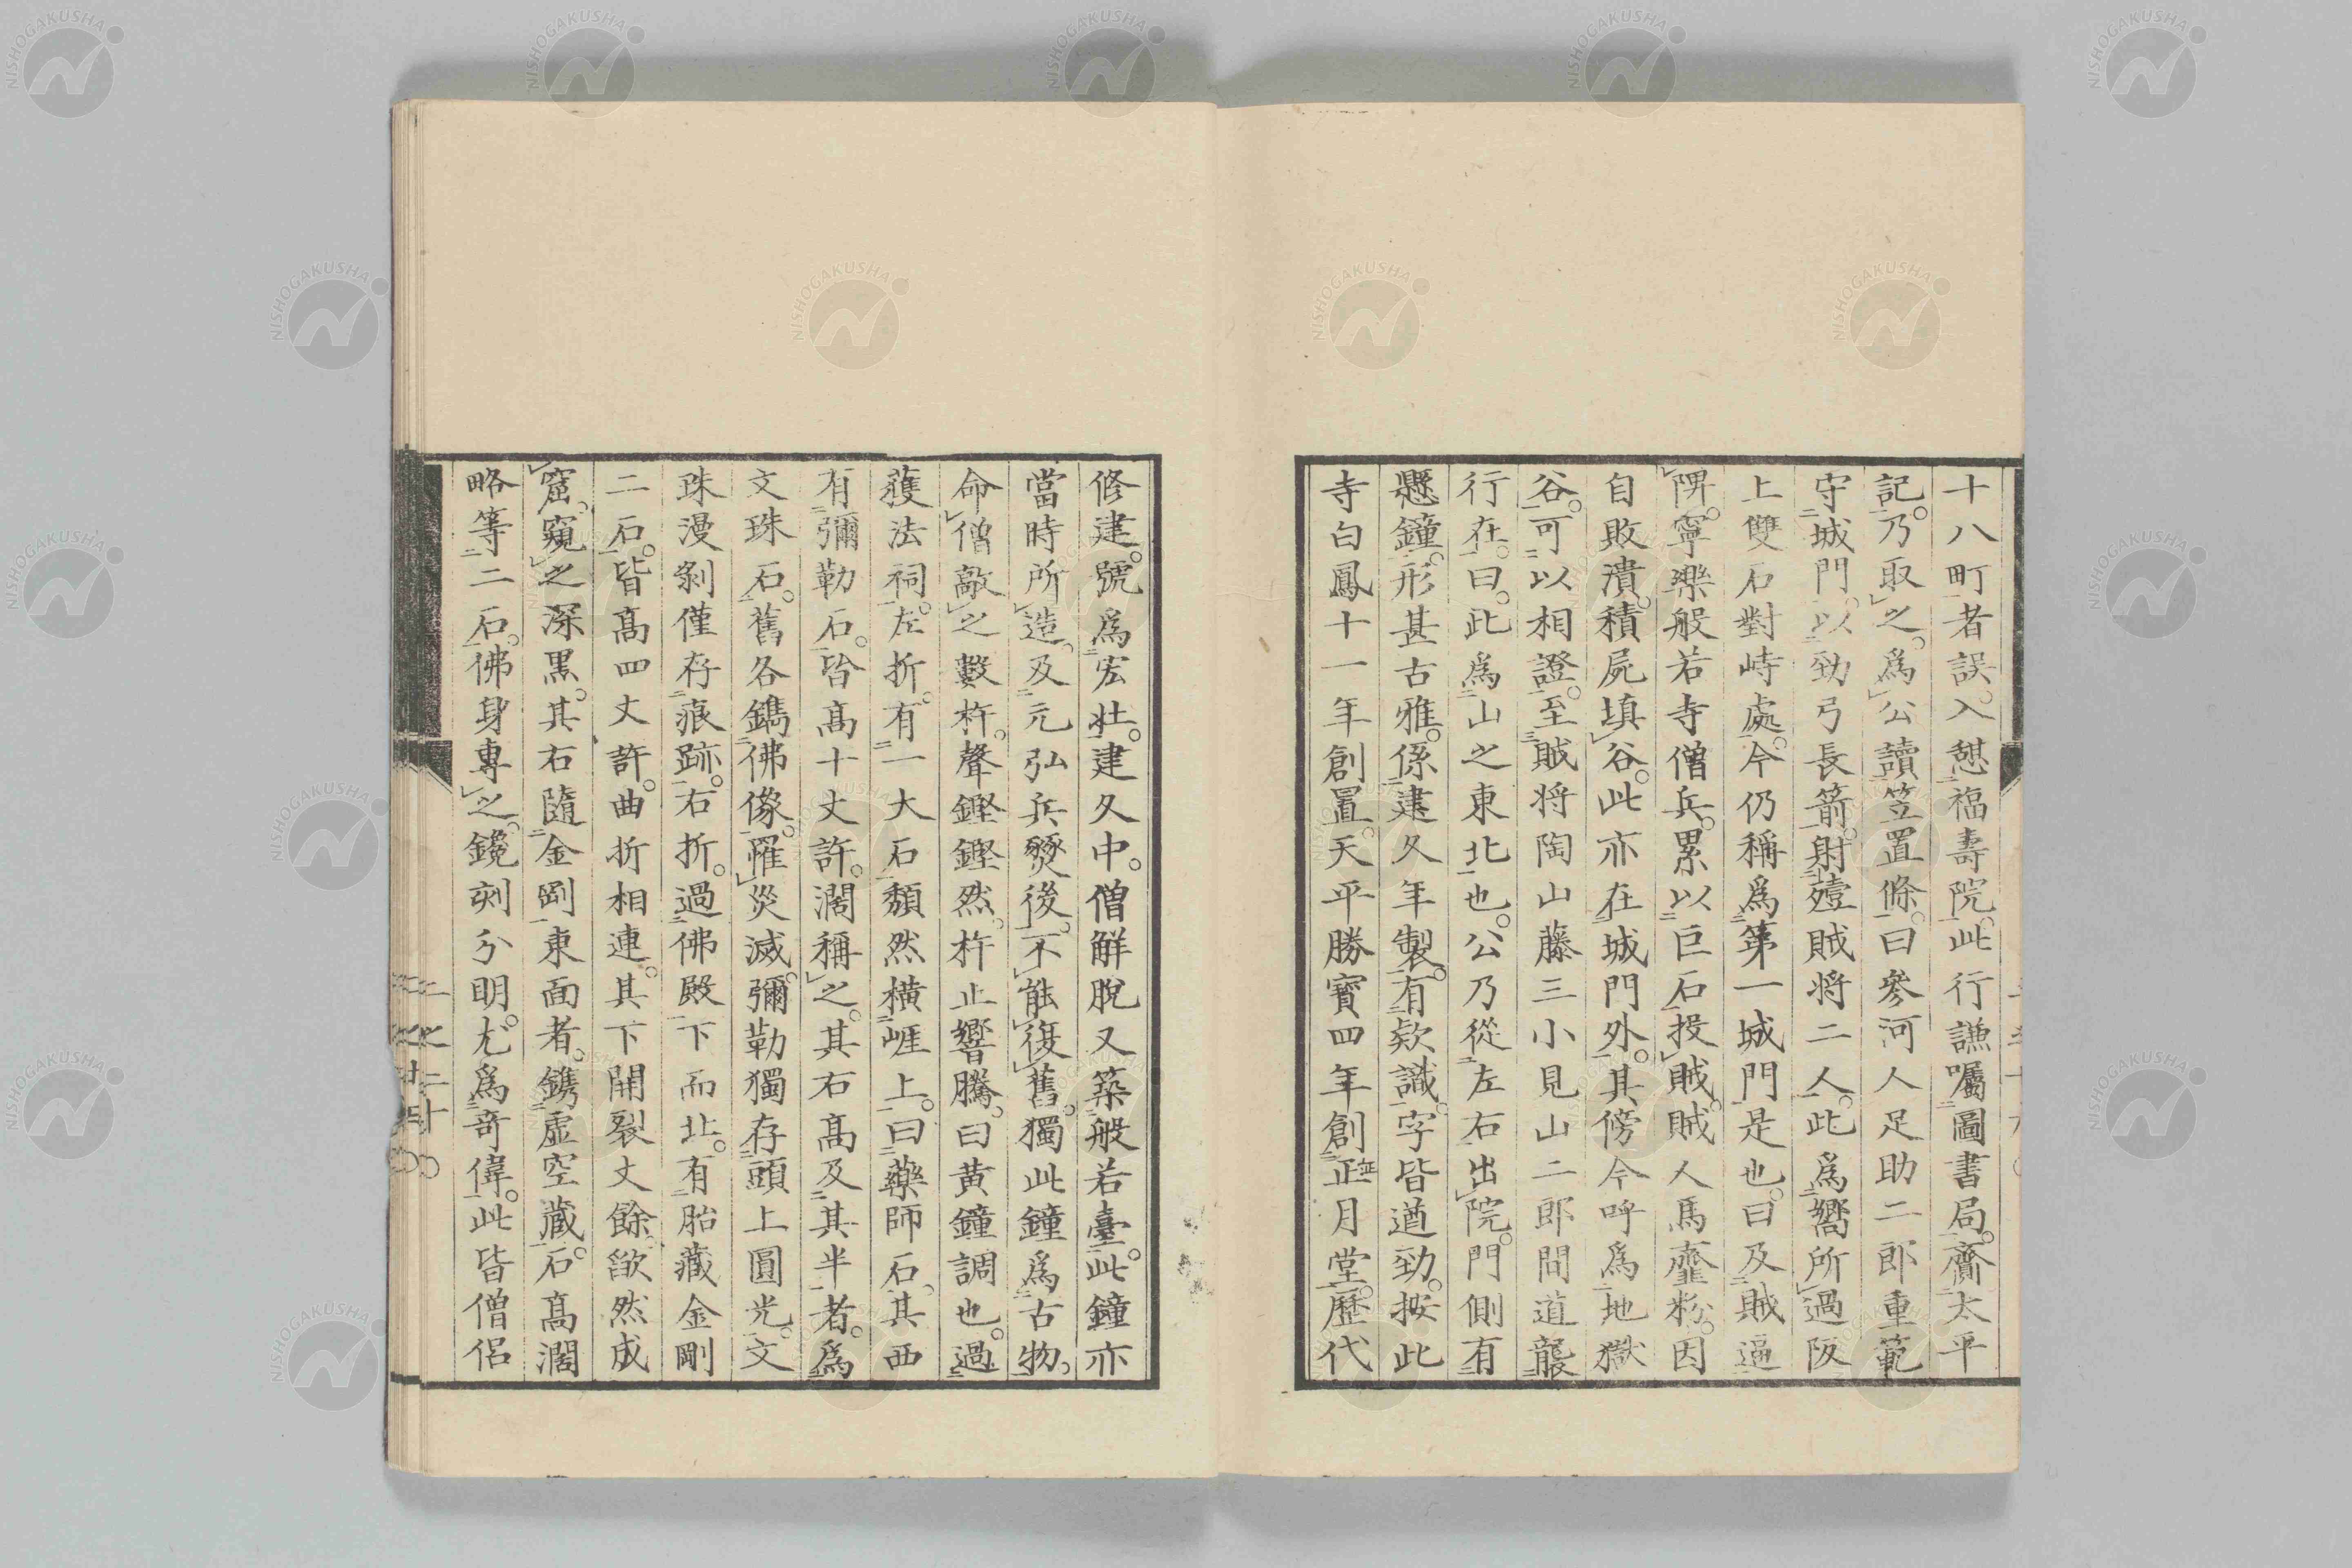 十八町者誤。入憩福壽院。此行謙囑圖書局。齎太平
記。乃取之。爲公讀笠置條。曰參河人足助二郎重範
守城門。以勁弓長箭。射殪賊将二人。此爲嚮所過阪
上雙石對峙處。今仍稱爲第一城門是也。曰及賊逼
陴。寧樂般若寺僧兵。累以巨石投賊。賊人馬齏粉。因
自敗潰。積屍填谷。此亦在城門外。其傍今呼爲地獄
谷。可以相證。至賊将陶山藤三小見山二郎間道襲
行在。曰。此爲山之東北也。公乃從左右出院。門側有
懸鐘。形甚古雅。係建久年製。有欵識。字皆遒勁。按此
寺白鳳十一年創置。天平勝寳四年創正月堂。歷代
修建。號爲宏壯。建久中。僧解脫又築般若臺。此鐘亦
當時所造。及元弘兵燹後。不能復舊。獨此鐘爲古物。
命僧敲之數杵。聲鏗鏗然。杵止響騰。曰黄鐘調也。過
護法祠。左折。有一大石頹然橫崕上。曰藥師石。其西
有彌勒石。皆髙十丈許。濶稱之。其右髙及其半者。爲
文珠石。舊各鐫佛像。罹災滅。彌勒獨存頭上圓光。文
珠漫剝僅存痕跡。右折。過佛殿下而北。有胎藏金剛
二石。皆髙四丈許。曲折相連。其下開裂丈餘。欿然成
窟。窺之深黒。其右隨金剛東面者。鐫虛空藏石。髙濶
略等二石。佛身專之。鑱刻分明。尤爲奇偉。此皆僧侶
NISHOGAKUSHA